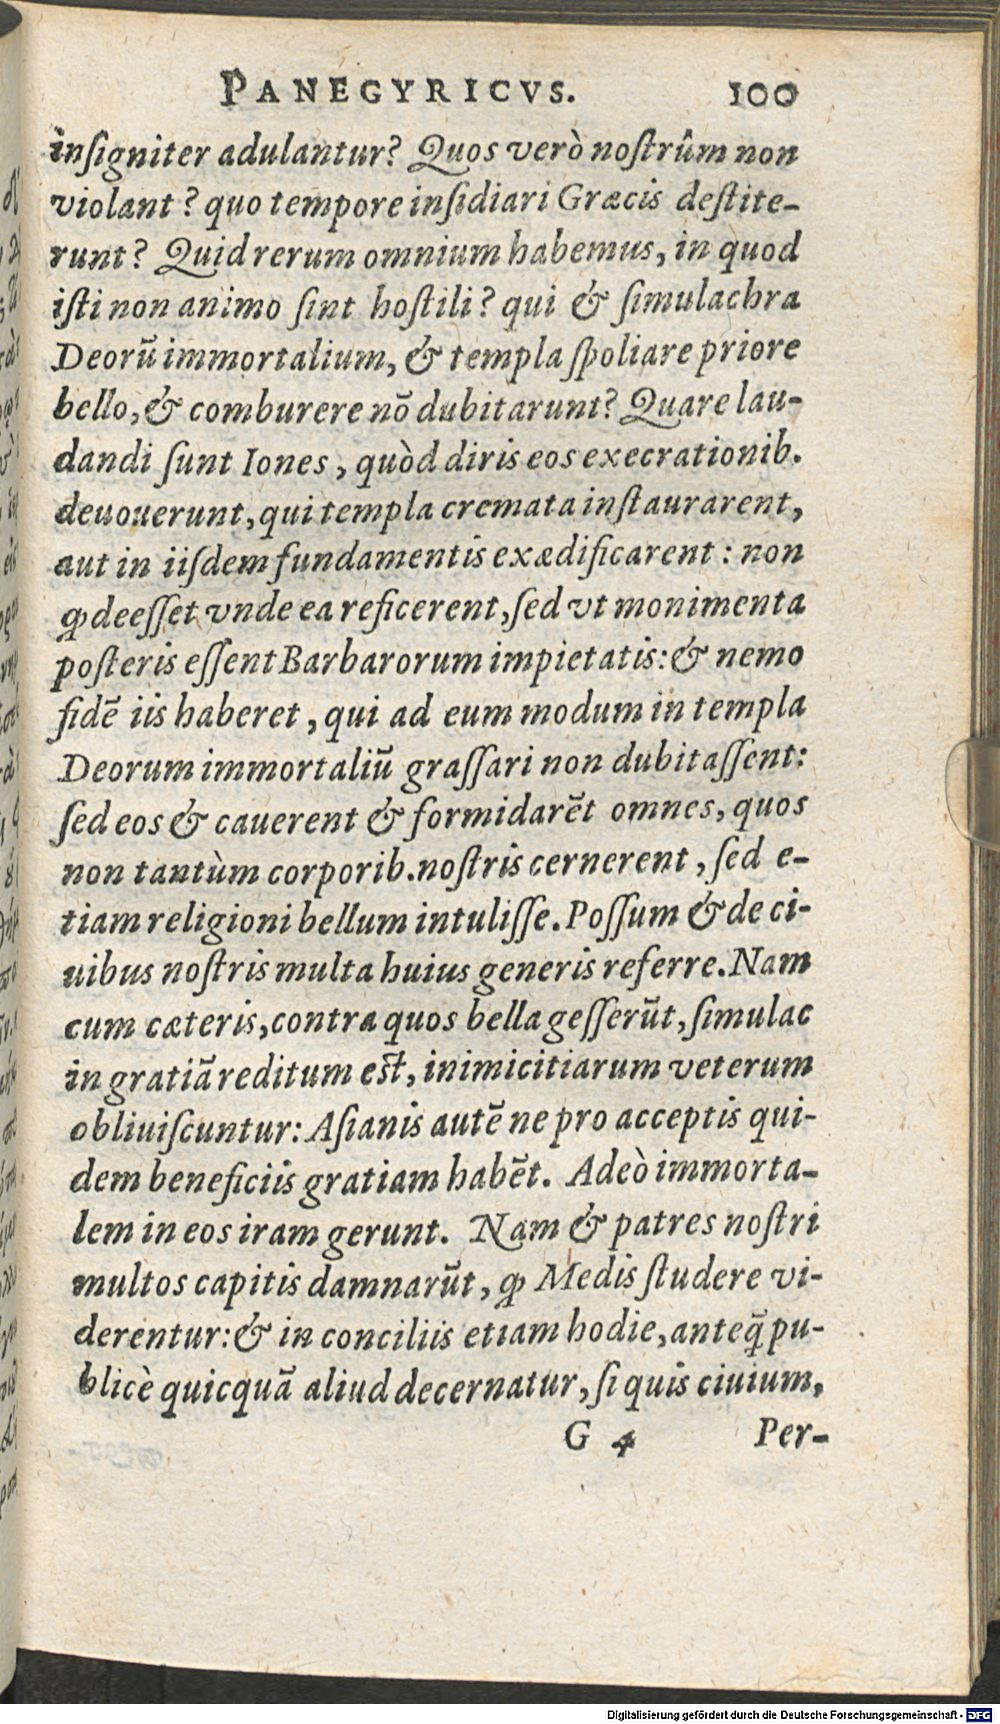 PANEGYRICVS. 100
inſigniter adulantur? Quos verò noſtrûm non
violant? quo tempore inſidiari Græcis deſtite-
runt? Quid rerum omnium habemus, in quod
iſti non animo ſint hoſtili? qui & ſimulachra
Deorū immortalium, & templa ſpoliare priore
bello, & comburere nō dubitarunt? Quare lau-
dandi ſunt Iones, quòd diris eos execrationib.
deuouerunt, qui templa cremata inſtaurarent,
aut in iiſdem fundamentis exædificarent: non
ꝙ deeſſet vnde ea reficerent, ſed vt monimenta
poſteris eſſent Barbarorum impietatis: & nemo
fidē iis haberet, qui ad eum modum in templa
Deorum immortaliū graſſari non dubitaſſent:
ſed eos & cauerent & formidarēt omnes, quos
non tantùm corporib. noſtris cernerent, ſed e-
tiam religioni bellum intuliſſe. Poſſum & de ci-
uibus noſtris multa huius generis referre. Nam
cum cæteris, contra quos bella geſſerūt, ſimulac
in gratiā reditum eſt, inimicitiarum veterum
obliuiſcuntur: Aſianis autē ne pro acceptis qui-
dem beneficiis gratiam habēt. Adeò immorta-
lem in eos iram gerunt. Nam & patres noſtri
multos capitis damnarūt, ꝙ Medis ſtudere vi-
derentur: & in conciliis etiam hodie, anteq̃ pu-
blicè quicquā aliud decernatur, ſi quis ciuium,
G 4 Per-
Digitalisierung gefördert durch die Deutsche Forschungsgemeinschaft - DFG